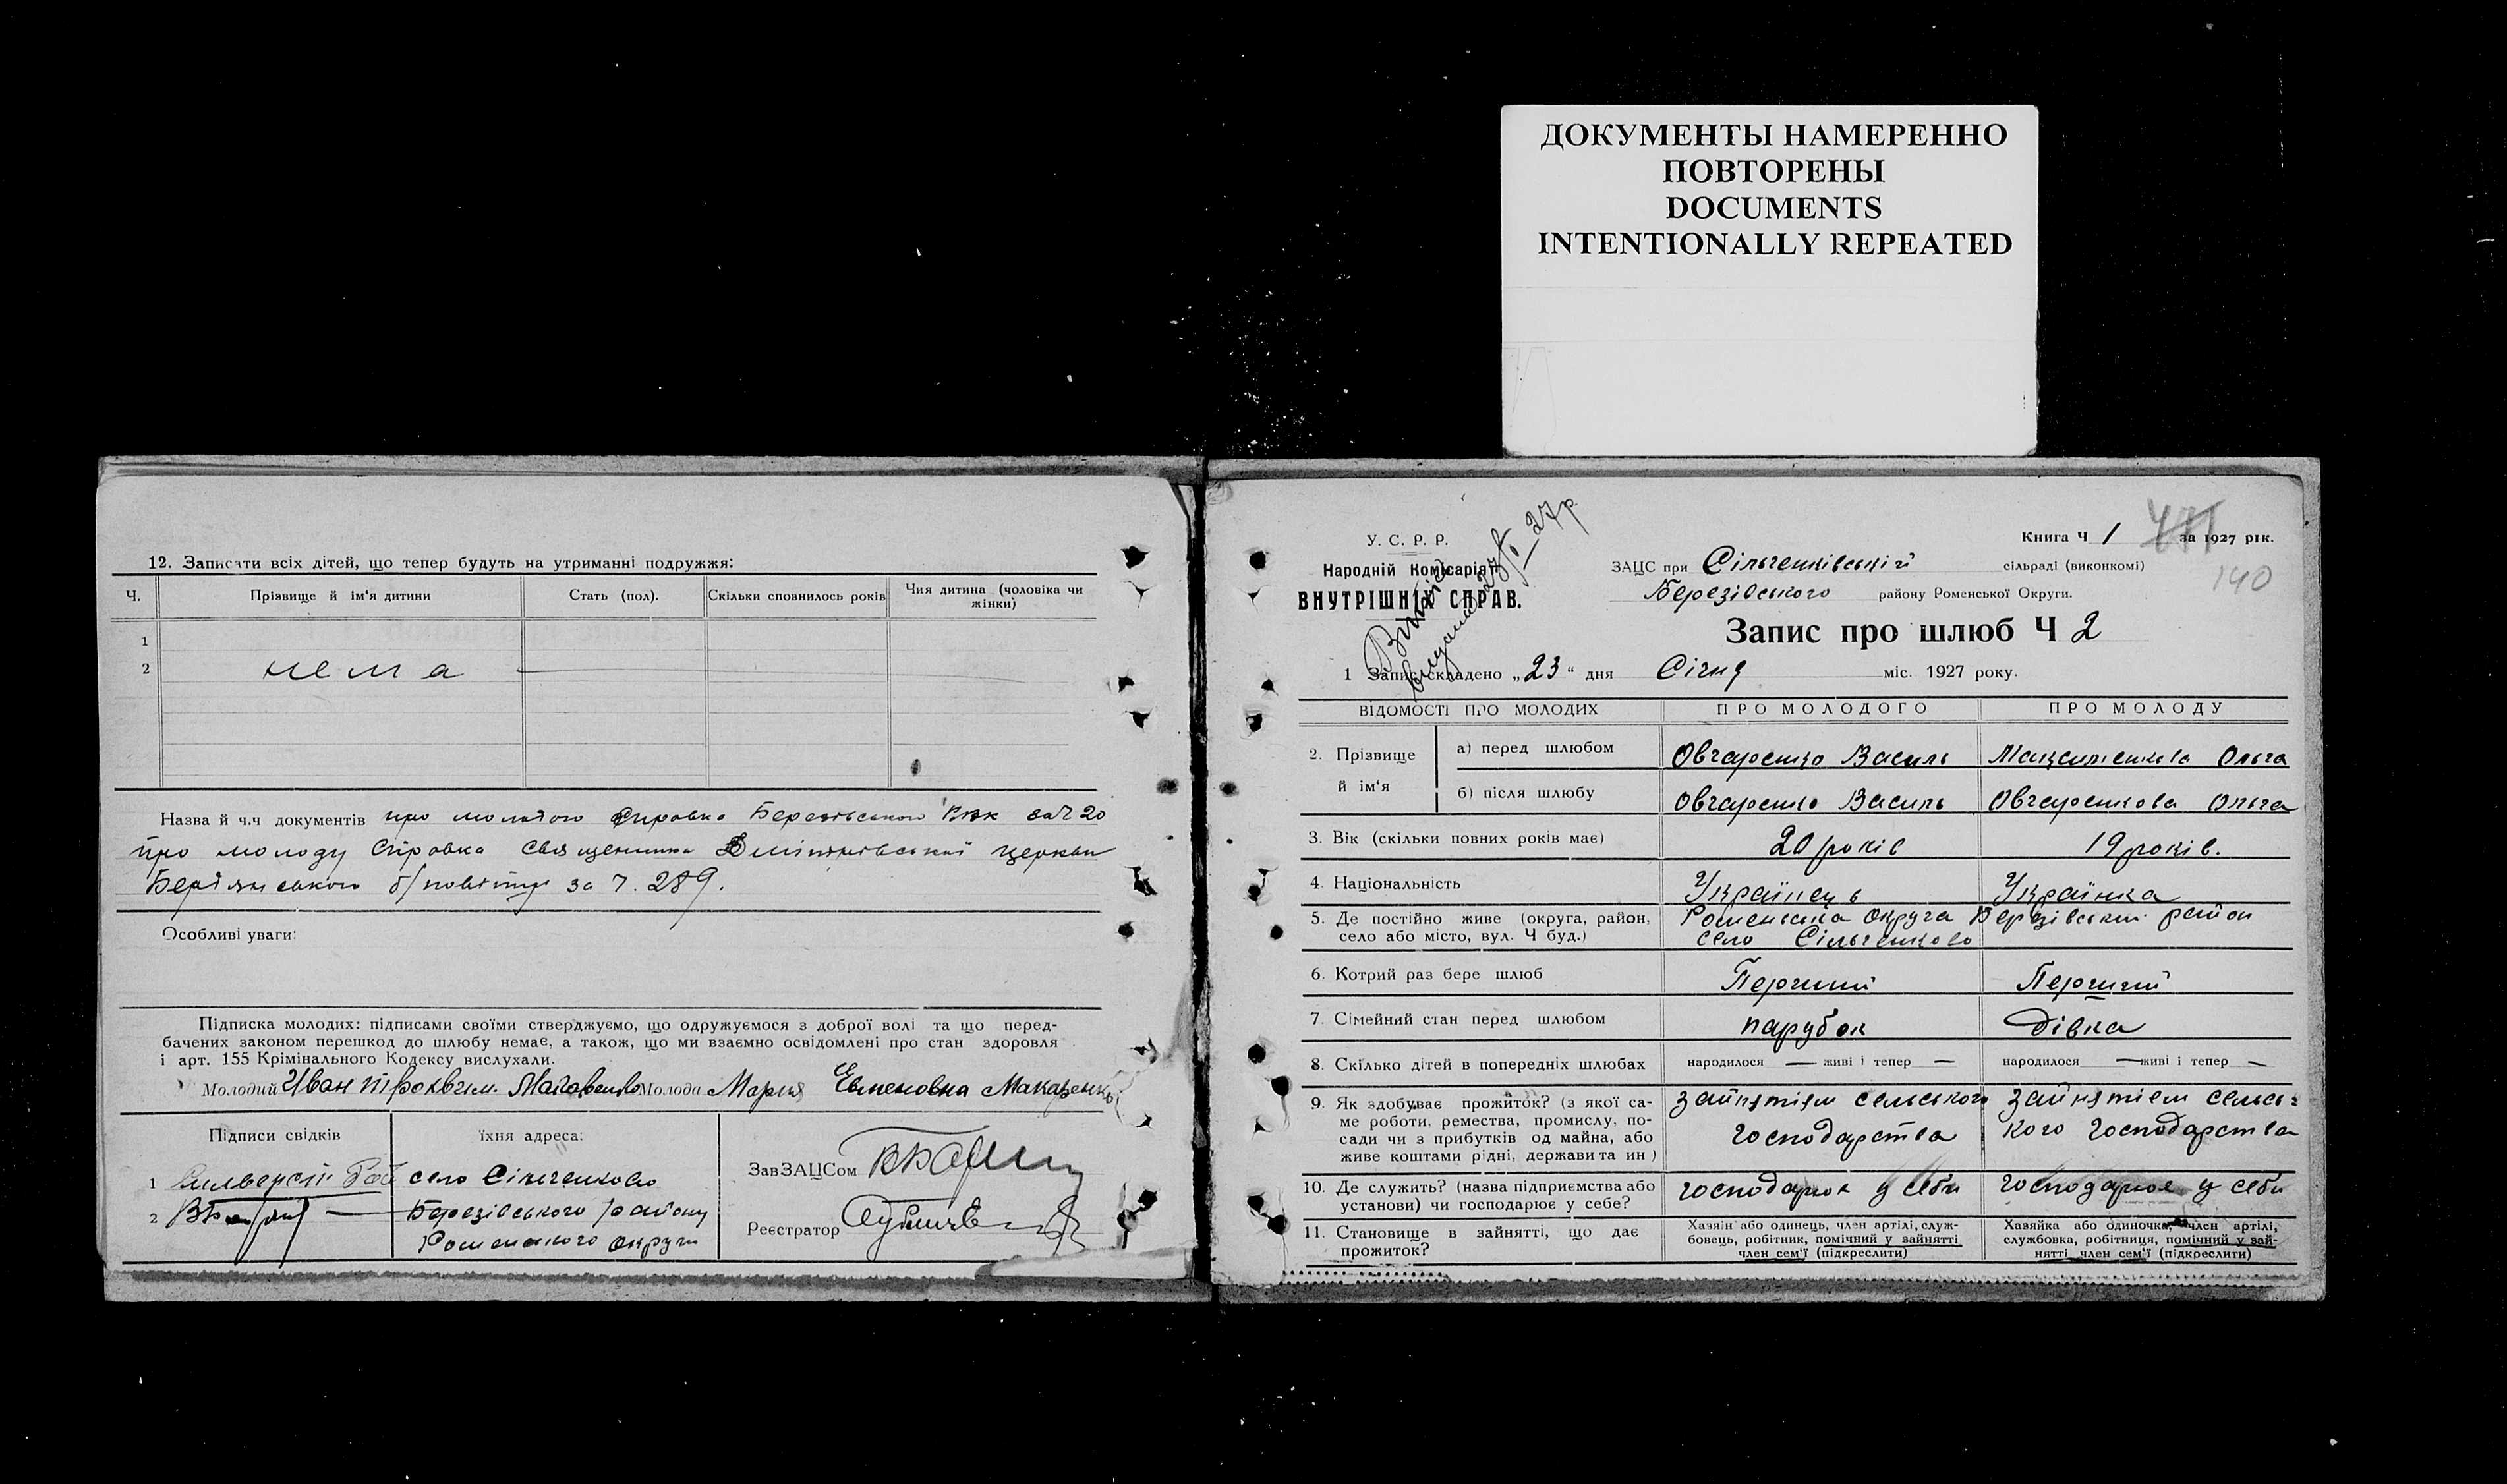 ДОКУМЕНТЫ НАМЕРЕННО
ПОВТОРЕНЫ
DOCUMENTS
INTENTIONALLY REPEATED
12. Записати всіх дітей, що тепер будуть на утриманні подружжя:
Ч. Прізвище й ім'я дитини Стать (пол). Скільки сповнилось років Чия дитина (чоловіка чи жінки)
1
2 нема —
Назва й ч.ч документів про молодого справка Березівського за Ч 20
про молоду справка священника церкви
Бердянського б/повіту за Ч. 289.
Особливі уваги:
Підписка молодих: підписами своїми стверджуємо, що одружуємося з доброї волі та що перед-
бачених законом перешкод до шлюбу немає, а також, що ми взаємно освідомлені про стан здоровля
і арт. 155 Крімінального Кодексу вислухали.
Молодий Иван Молода Мария Евменовна Макаренко
Підписи свідків їхня адреса:
ЗавЗАЦСом
1 село Сільченково
2 — Березівського району
Роменського округи
Реєстратор
У. С. Р. Р.
Народній Комісаріят
ВНУТРІШНІХ СПРАВ.
27р.
Книга Ч 1 за 1927 рік.
140
ЗАЦС при Сільченківській сільраді (виконкомі)
Березівського району Роменської Округи.
Запис про шлюб Ч 2
1 Запис складено „23“ дня Січня міс. 1927 року.
ВІДОМОСТІ ПРО МОЛОДИХ ПРО МОЛОДОГО ПРО МОЛОДУ
2. Прізвище й ім'я а) перед шлюбом Овчаренко Василь Максименкова Ольга
б) після шлюбу Овчаренко Василь Овчаренкова Ольга
3. Вік (скільки повних років має) 20 років 19 років.
4. Національність Українець Українка
5. Де постійно живе (округа, район, Роменська округа Березівський район
село або місто, вул. Ч буд.) село Сільченково
6. Котрий раз бере шлюб Перший Перший
7. Сімейний стан перед шлюбом парубок дівка
8. Скілько дітей в попередніх шлюбах народилося — живі і тепер — народилося — живі і тепер —
9. Як здобуває прожиток? (з якої са-
ме роботи, ремества, промислу, по-
сади чи з прибутків од майна, або
живе коштами рідні, держави та ин)
зайнятієм сельського
господарства
зайнятієм сельсь-
кого господарства
10. Де служить? (назва підприємства або
установи) чи господарює у себе?
господарює у себи господарює у себи
11. Становище в зайнятті, що дає
прожиток?
Хазяїн або одинець, член артілі, служ-
бовець, робітник, помічний у зайнятті
член сем'ї (підкреслити)
Хазяйка або одиночка, член артілі,
службовка, робітниця, помічний у зай-
нятті член сем'ї (підкреслити)